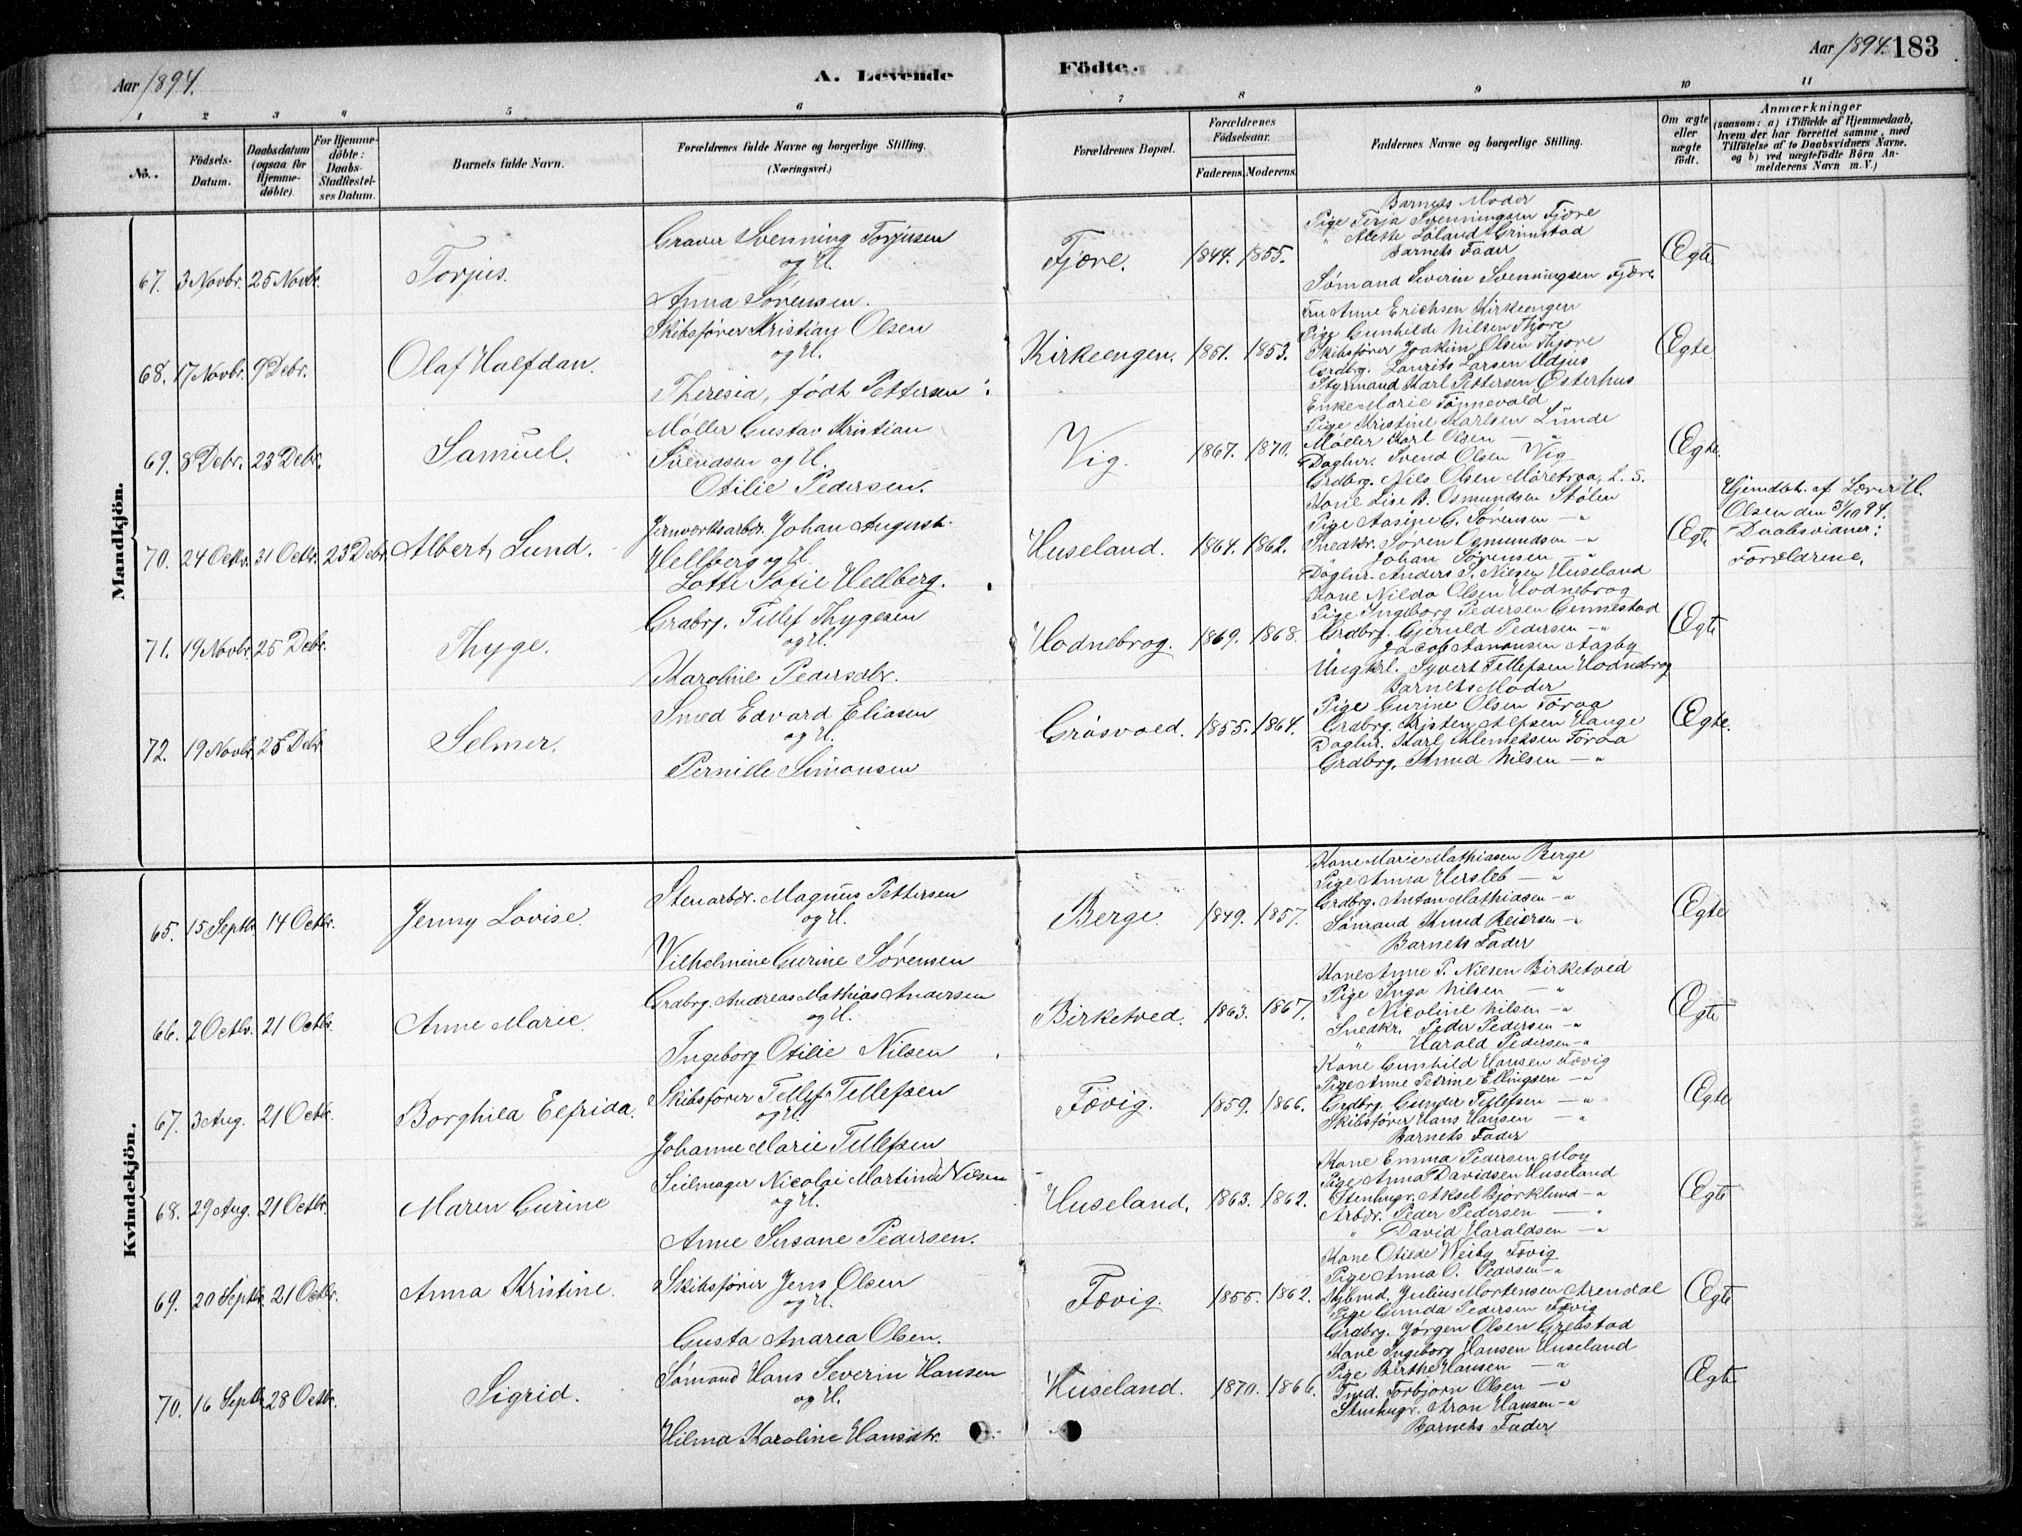 Aar 1894.
A. Levende
Födte.
Aar 1894. 183
1 2 3 4 5 6 7 8 9 10 11
No.
Födsels-Datum.
Daabsdatum (ogsaa for Hjemmedöbte).
For Hjemmedöbte: Daabs-Stadfæstelses Datum.
Barnets fulde Navn.
Forældrenes fulde Navne og borgerlige Stilling. (Næringsvei.)
Forældrenes Bopæl.
Forældrenes Födselsaar.
Faderens. Moderens.
Faddernes Navne og borgerlige Stilling.
Om ægte eller uægte födt.
Anmærkninger
(saasom: a) i Tilfælde af Hjemmedaab, hvem der har forrettet samme, med Tilföielse af to Daabsvidners Navne, og b) ved uægtefödte Börn Anmelderens Navn m. V.)
Mandkjön.
67. 3 Novbr. 25 Novbr. Torjus.
Graver Svenning Torjusen
og H.
Anna Sørensen.
Fjære. 1844. 1855.
Barnets Moder
Pige Terja Svenningsen Fjære
" Mette Løland Grimstad
Barnets Fader
Sømand Severin Svenningsen Fjære
Egte.
68. 17 Novbr. 9 Debr. Olaf Halfdan.
Skibsfører Kristian Olsen
og H.
Theresia, født Pettersen.
Kirkeengen. 1851. 1853.
Fru Anne Erichsen Kirkeengen
Pige Gunhilde Nilsen Fjære
Skibsfører Joakim Olsen Fjære
Grdbrg. Laurits Larsen Udjus
Styrmand Karl Pettersen Østerhus
Egte
69. 8 Debr. 23 Debr. Samuel.
Møller Gustav Kristian
Svendsen og H.
Otilie Pedersen.
Vig. 1867. 1870.
Enke Marie Tønnevold
Pige Kristine Karlsen Lunde
Møller Karl Olsen — "
Daglnr. Svend Olsen Vig
Grdbrg. Nils Olsen Møretraa, L. S.
Egte.
70. 24 Octbr. 31 Octbr. 23 Debr. Albert Lund.
Jernværksarbdr. Johan August
Hellberg og H.
Lotte Sofie Hellberg.
Huseland. 1864. 1862.
Kone Lise B. Osmundsen Stølen
Pige Aasine G. Sørensen — "
Snedkr. Søren Osmundsen — "
Johan Sørensen — "
Daglnr. Anders P. Nilsen Huseland
Egte
Hjemdøbt af Lærer H.
Olsen den 31/10 94.
Daabsvidner:
Forældrene.
71. 19 Novbr. 25 Debr. Thyge.
Grdbrg. Tellef Thygesen
og H.
Karoline Pedersdtr.
Hodnebrog. 1869. 1868.
Kone Nilda Olsen Hodnebrog
Pige Ingeborg Pedersen Gunnestad
Grdbrg. Gjeruld Pedersen — "
Jacob Aanonsen Aagby
Ungkrl. Syvert Tellefsen Hodnebrog
Egte
72. 19 Novbr. 25 Debr. Selmer.
Smed Edvard Eliasen
og H.
Pernille Simonsen
Grøsvold. 1855. 1864.
Barnets Moder
Pige Gurine Olsen Føraa
Grdbrg. Kristen Alfsen Hauge
Daglnr. Karl Klemetsen Føraa
Grdbrg. Knud Nilsen — "
Egte.
Kvindekjön.
65. 15 Septbr. 14 Octbr. Jenny Lovise.
Stenarbdr. Magnus Pettersen
og H.
Vilhelmine Gurine Sørensen
Berge. 1849. 1857.
Kone Marie Mathiasen Berge
Pige Anna Hersleb — "
Grdbrg. Anton Mathiasen — "
Sømand Knud Reiersen — "
Barnets Fader
Egte
66. 2 Octbr. 21 Octbr. Anne Marie.
Grdbrg. Andreas Mathias Andersen
og H.
Ingeborg Otilie Nilsen
Birketved. 1863. 1867.
Kone Anne P. Nilsen Birketved
Pige Inga Nilsen — "
" Nicoline Nilsen — "
Snedkr. Peder Pedersen — "
" Harald Pedersen — "
Egte
67. 3 Aug. 21 Octbr. Borghild Elfrida.
Skibsfører Tellef Tellefsen
og H.
Johanne Marie Tellefsen
Fævig. 1859. 1866.
Kone Gunhild Hansen Fævig
Pige Anne Petrine Ellingsen — "
Grdbrg. Gunder Tellefsen — "
Skibsfører Hans Hansen — "
Barnets Fader
Egte
68. 29 Aug. 21 Octbr. Maren Gurine
Seilmager Nicolai Martinius Nilsen
og H.
Anne Susane Pedersen.
Huseland. 1863. 1862.
Kone Emma Pedersen Moy
Pige Anna Davidsen Huseland
Stenhugr. Aksel Bjørklund — "
Arbdr. Peder Pedersen — "
" David Haraldsen — "
Egte
69. 20 Septbr. 21 Octbr. Anna Kristine.
Skibsfører Jens Olsen
og H.
Gusta Andrea Olsen.
Fævig. 1855. 1862.
Kone Otilde Weiby Fævig
Pige Anna O. Pedersen — "
Kjbmd. Julius Mortensen Arendal
Pige Gunda Pedersen Fævig
Grdbrg. Jørgen Olsen Grebstad
Egte
70. 16 Septbr. 28 Octbr. Sigrid.
Sømand Hans Severin Hansen
og H.
Hilma Karoline Hansdtr.
Huseland. 1870. 1866.
Kone Ingeborg Hansen Huseland
Pige Birthe Hansen — "
Tmd. Torbjørn Olsen — "
Stenhugr. Aron Hansen — "
Barnets Fader
Egte